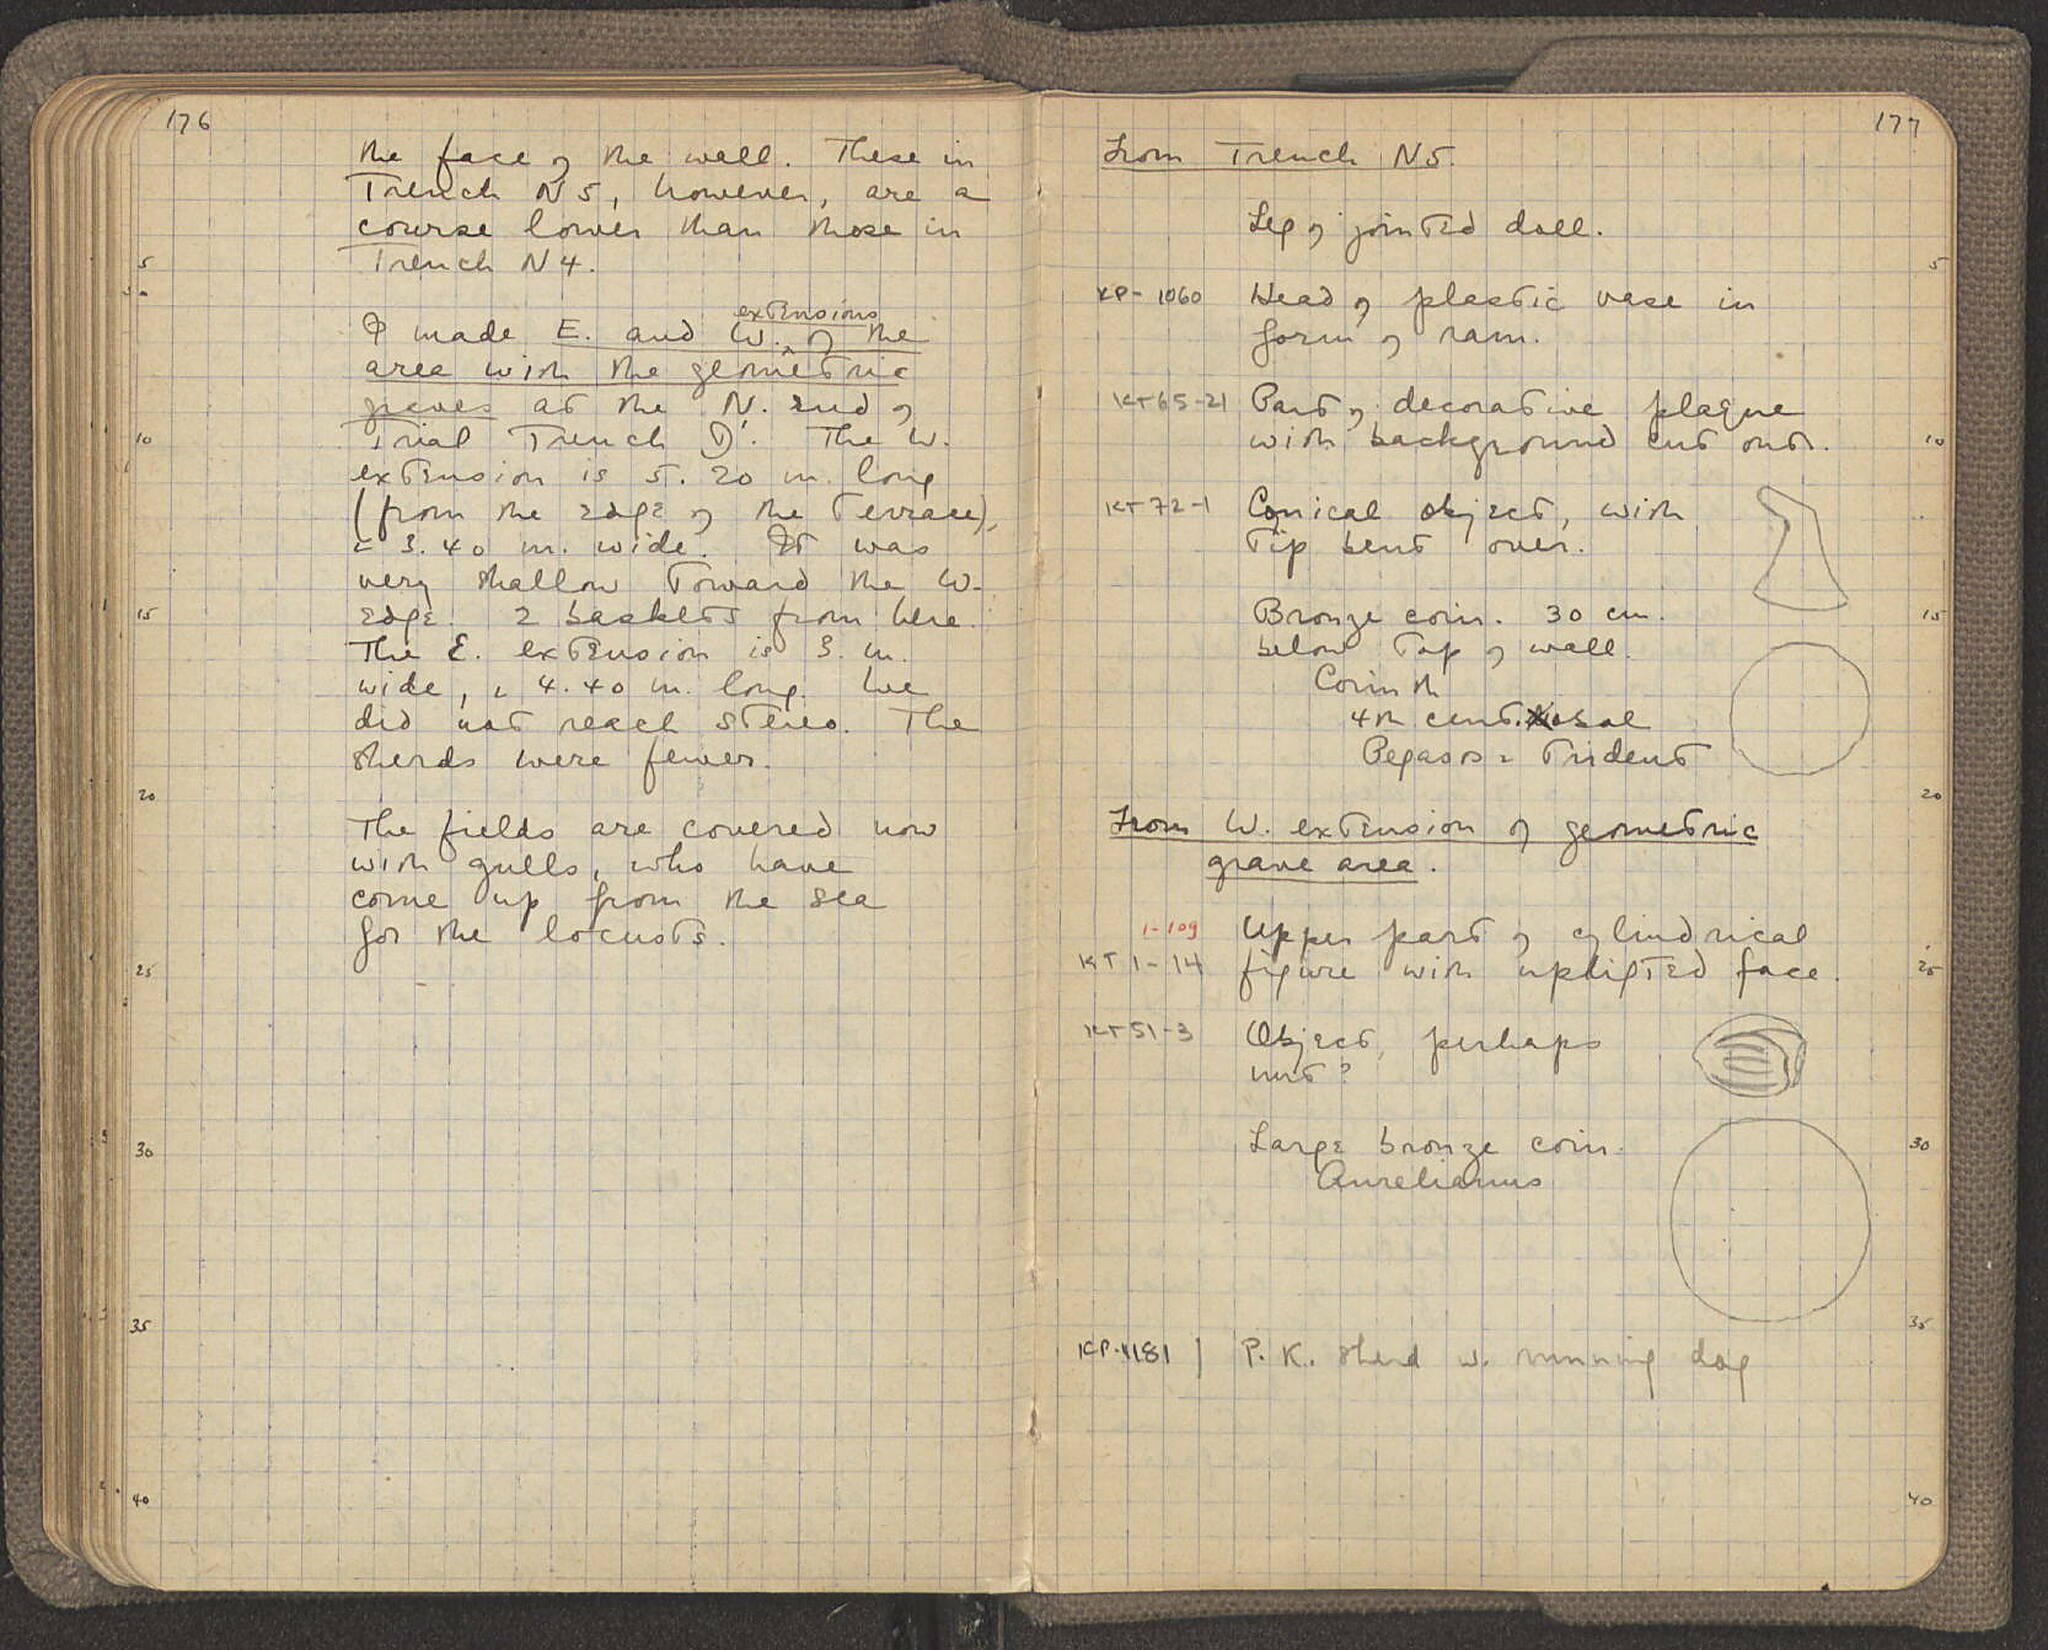 176
the face of the wall. These in
Trench N5, however, are a
course lower than those in
Trench N4.
extensions
I made E. and W. of the
area with the geometric
graves at the N. end of
Trial Trench D. The W.
extension is 5.20 m. long
(from the edge of the terrace),
+ 3.40 m. wide. It was
very shallow toward the W.
edge. 2 baskets from here.
The E. extension is 3. m.
wide, + 4.40 m. long. We
did not reach stereo. The
sherds were fewer.
The fields are covered now
with gulls, who have
come up from the sea
for the locusts.
5
10
15
20
25
30
35
40
177
From Trench N5.
Leg of jointed doll.
KP-1060 Head of plastic vase in
form of ram.
KT65-21 Part of decorative plaque
with background cut out.
KT72-1 Conical object, with
tip bent over.
Bronze coin. 30 cm.
below top of wall.
Corinth
4th cent. obol
Pegasos = Trident
From W. extension of geometric
grave area.
1-109 Upper part of cylindrical
KT1-14 figure with uplifted face.
KT51-3 Object, perhaps
nut?
Large bronze coin.
Aurelianus
KP-1181 P.K. sherd w. running dog
5
10
15
20
25
30
35
40